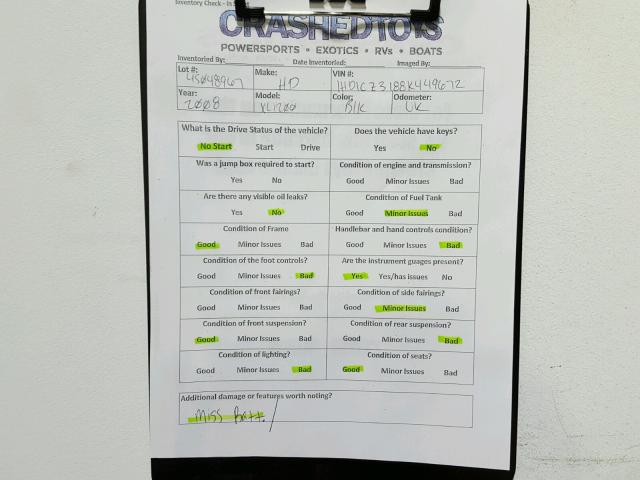 Inventory Check - In
CRASHEDTOYS
POWERSPORTS • EXOTICS • RVs • BOATS
Inventoried By: Date Inventoried: Imaged By:
Lot #: 45048967 Make: HD VIN #: 1HD1CZ3188K449672
Year: 2008 Model: XL1200 Color: Blk Odometer: UK
What is the Drive Status of the vehicle? Does the vehicle have keys?
No Start Start Drive Yes No
Was a jump box required to start? Condition of engine and transmission?
Yes No Good Minor Issues Bad
Are there any visible oil leaks? Condition of Fuel Tank
Yes No Good Minor Issues Bad
Condition of Frame Handlebar and hand controls condition?
Good Minor Issues Bad Good Minor Issues Bad
Condition of the foot controls? Are the instrument guages present?
Good Minor Issues Bad Yes Yes/has issues No
Condition of front fairings? Condition of side fairings?
Good Minor Issues Bad Good Minor Issues Bad
Condition of front suspension? Condition of rear suspension?
Good Minor Issues Bad Good Minor Issues Bad
Condition of lighting? Condition of seats?
Good Minor Issues Bad Good Minor Issues Bad
Additional damage or features worth noting?
Miss Batt.